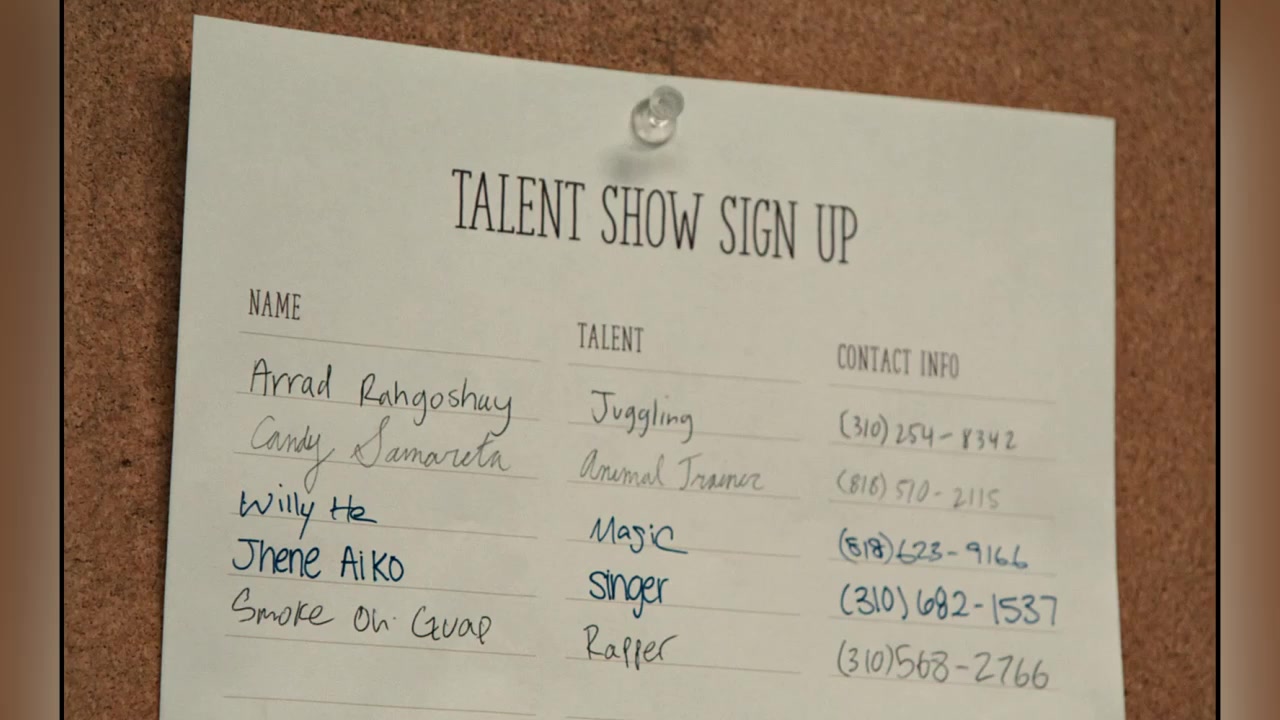 TALENT SHOW SIGN UP
NAME TALENT CONTACT INFO
Arrad Rahgoshay Juggling (310) 254-8342
Candy Samareta Animal Trainer (818) 570-2115
Willy He Magic (818) 623-9166
Jhene Aiko singer (310) 682-1537
Smoke Oh Guap Rapper (310) 568-2766